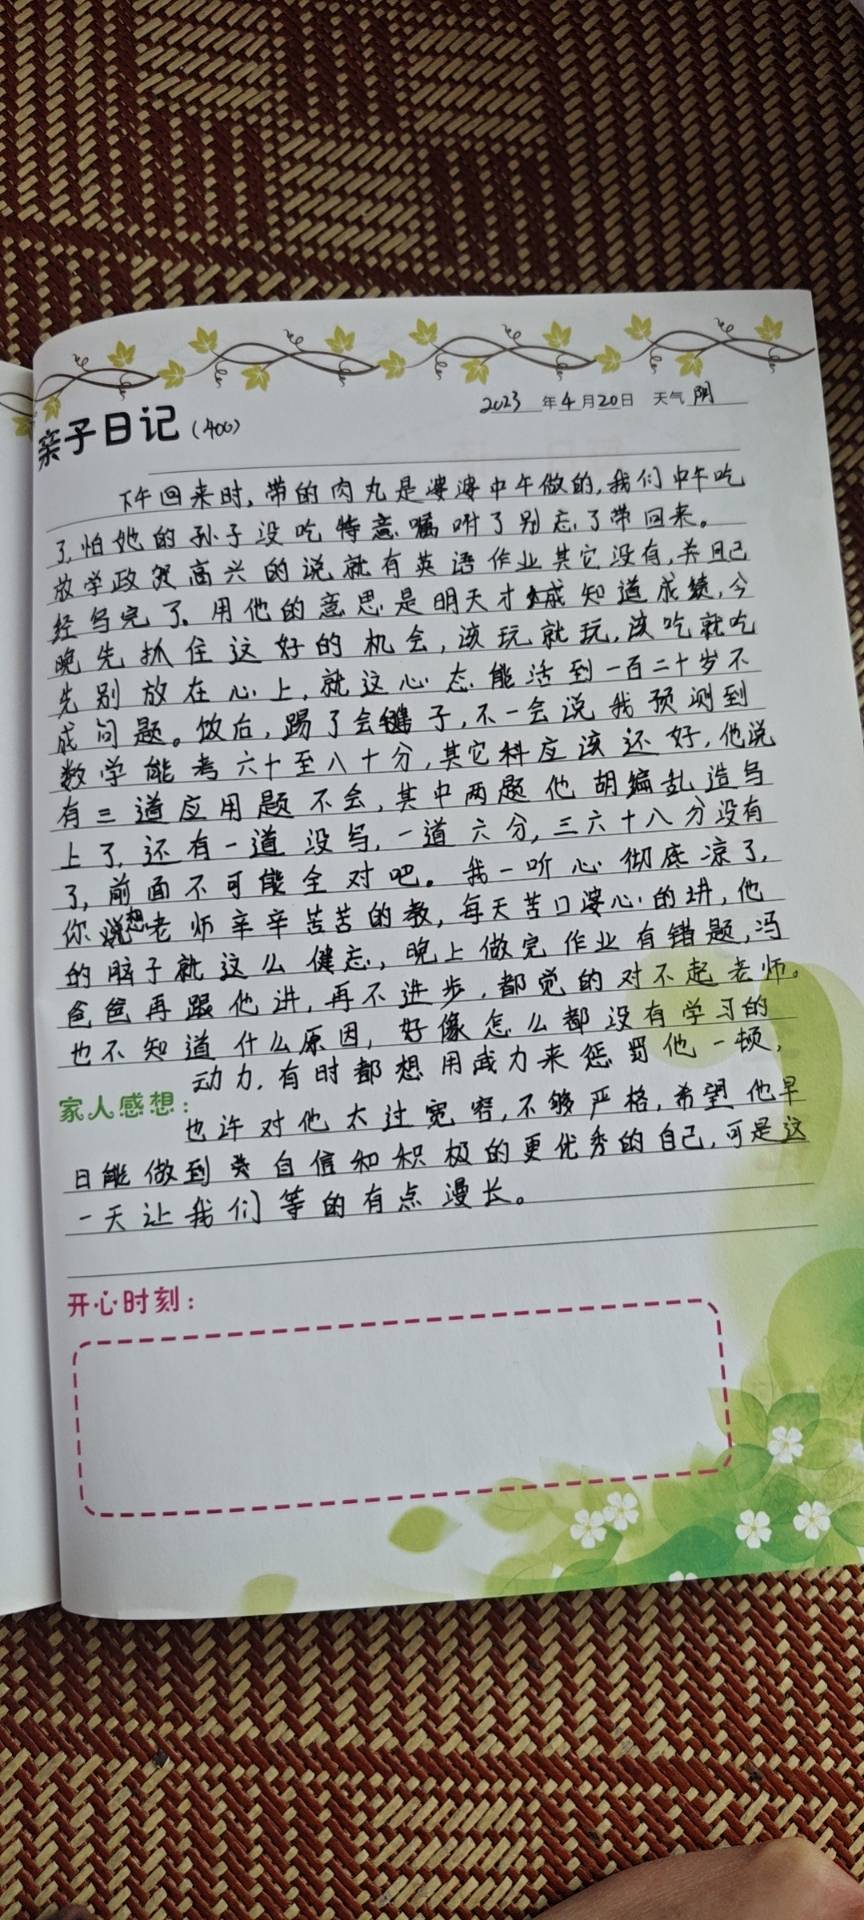 2023 年 4 月 20 日 天气 阴
亲子日记（400）
下午回来时，带的肉丸是婆婆中午做的，我们中午吃
了，怕她的孙子没吃特意嘱咐了别忘了带回来。
放学政贺高兴的说就有英语作业其它没有，并且已
经写完了。用他的意思是明天才知道成绩，今
晚先抓住这好的机会，该玩就玩，该吃就吃
先别放在心上，就这心态能活到一百二十岁不
成问题。饭后，踢了会毽子，不一会说我预测到
数学能考六十至八十分，其它科应该还好，他说
有三道应用题不会，其中两题他胡编乱造写
上了，还有一道没写，一道六分，三六十八分没有
了，前面不可能全对吧。我一听心彻底凉了，
你想老师辛辛苦苦的教，每天苦口婆心的讲，他
的脑子就这么健忘，晚上做完作业有错题，冯
爸爸再跟他讲，再不进步，都觉的对不起老师。
也不知道什么原因，好像怎么都没有学习的
动力，有时都想用武力来惩罚他一顿，
家人感想：
也许对他太过宽容，不够严格，希望他早
日能做到 自信和积极的更优秀的自己，可是这
一天让我们等的有点漫长。
开心时刻：